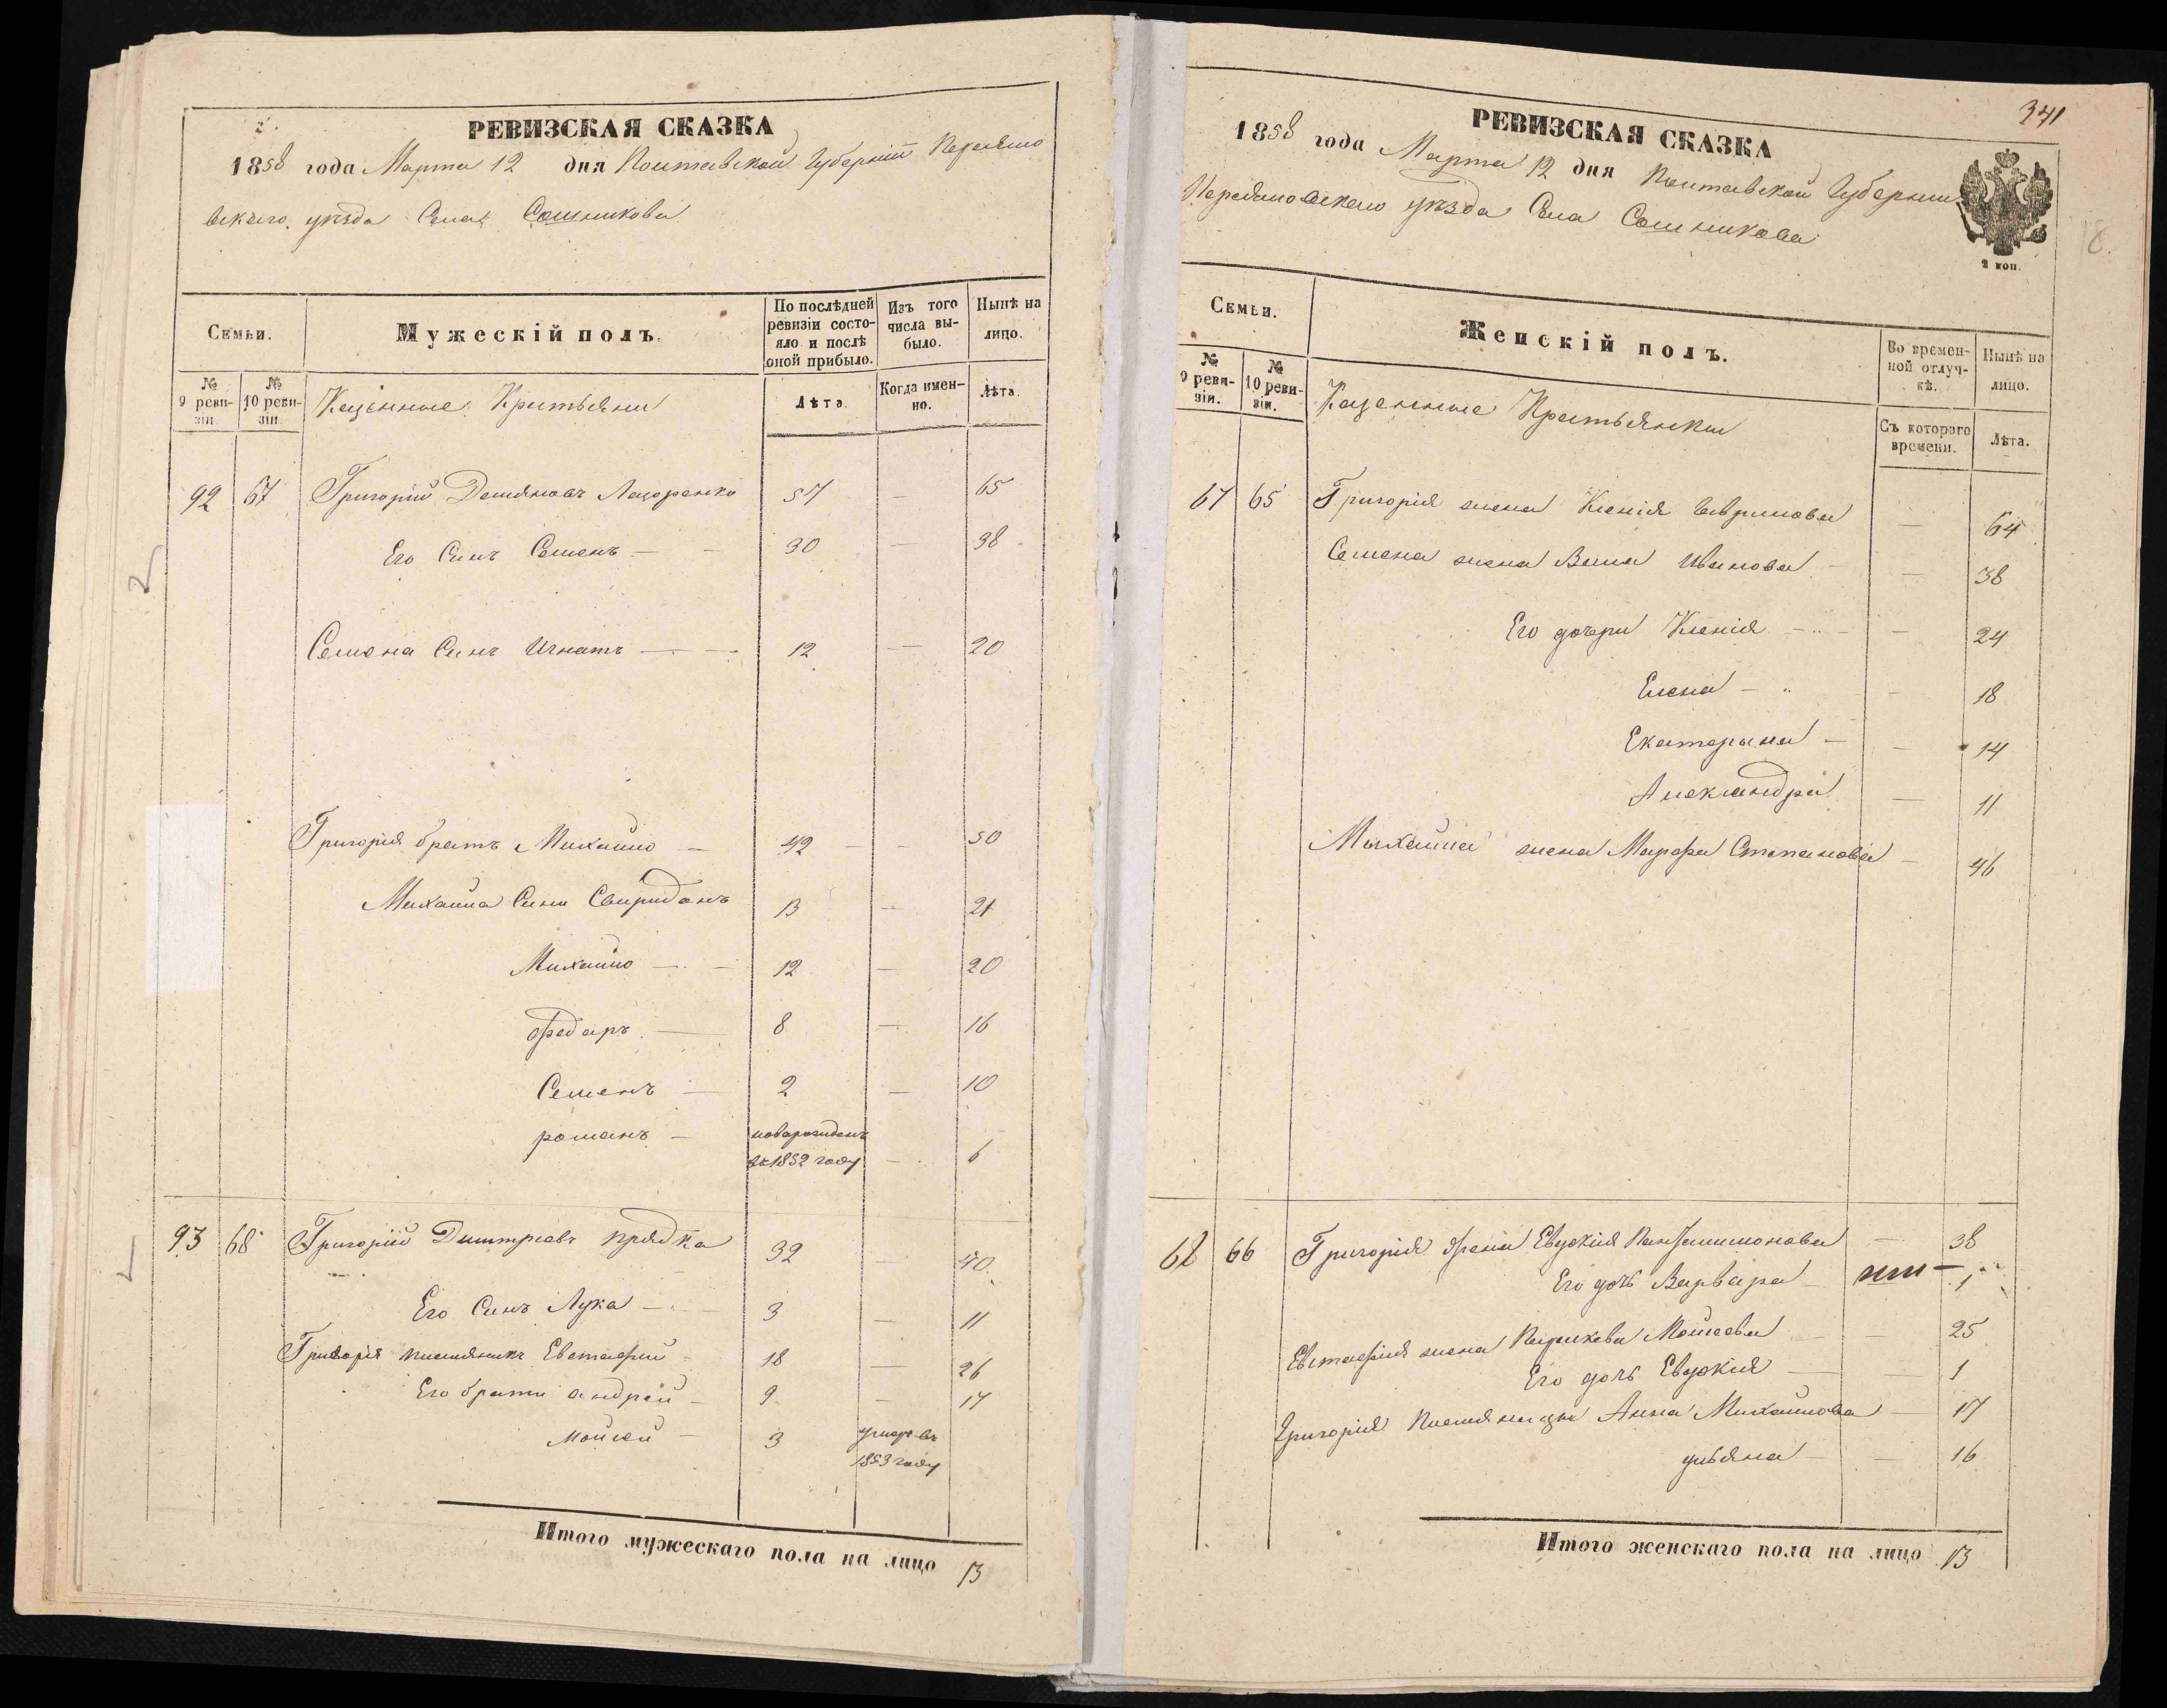 РЕВИЗСКАЯ СКАЗКА
1858 года Марта 12 дня Полтавской Губерніи Переясло
вскаго уѣзда Села Сошникова
Семьи.
Мужескій полъ.
По послѣдней ревизіи состояло и послѣ оной прибыло.
Изъ того числа выбыло.
Нынѣ на лицо.
№ 9 ревизіи.
№ 10 ревизіи.
Казенные Крестьяни
Лѣта
Когда именно.
Лѣта.
92 67 Григорій Демяновъ Лазоренко 57 — 65
Его Синъ Семенъ — 30 — 38
Семена Синъ Игнатъ — 12 — 20
Григорія братъ Михайло — 42 — 50
Михаила Сини Свиридонъ 13 — 21
Михайло — 12 — 20
Федоръ — 8 — 16
Семенъ — 2 — 10
романъ — новорожденъ
въ 1852 году — 6
93 68 Григорій Дмитріевъ прядка 32 — 40
Его Синъ Лука — 3 — 11
Григорія племянникъ Евстафій — 18 — 26
Его брати андрей — 9 — 17
Мойсей — 3 умеръ въ
1853 году
Итого мужескаго пола на лицо 13
341
РЕВИЗСКАЯ СКАЗКА
1858 года Марта 12 дня Полтавской Губерніи
Переяславскаго уѣзда Села Сошникова
2 коп.
18.
Семьи.
Женскій полъ.
Во временной отлучкѣ.
Нынѣ на лицо.
№ 9 ревизіи.
№ 10 ревизіи.
Казенные Крестьянки
Съ котораго времени.
Лѣта.
67 65 Григорія жена Ксенія Гаврилова — 64
Семена жена Анна Иванова — 38
Его дочери Ксенія — 24
Елена — 18
Екатерына — 14
Александра — 11
Михайла жена Марфа Степанова — 46
68 66 Григорія жена Евдокия Пантелимонова — 38
Его дочъ Варвара — 1
Евстафія жена Мойсеева — 25
Его дочъ Евдокия — 1
Григорія племяницы Анна Михайлова — 17
ульяна — 16
Итого женскаго пола на лицо 13